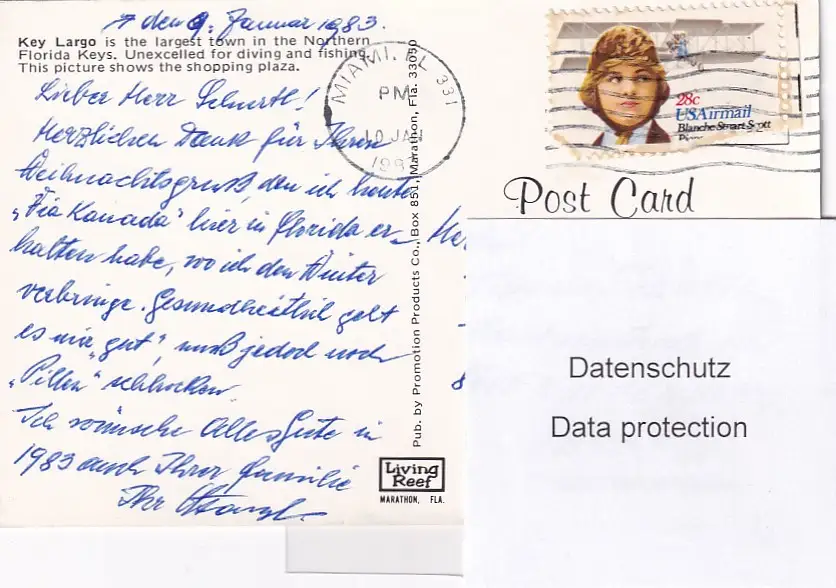 den 9. Januar 1983.
Key Largo is the largest town in the Northern
Florida Keys. Unexcelled for diving and fishing.
This picture shows the shopping plaza.
Lieber Herr
Herzlichen Dank für Ihren
Weihnachtsgruß, den ich heute
"Via Kanada" hier in Florida er-
halten habe, wo ich den Winter
verbringe. Gesundheitlich geht
es mir "gut", muß jedoch noch
"Pillen" schlucken.
Ich wünsche Alles Gute in
1983 auch Ihrer Familie
Ihr
Pub. by Promotion Products Co., Box 851, Marathon, Fla. 33050
Living
Reef
MARATHON, FLA.
MIAMI, FL 331
PM
10 JAN
198
28c
USAirmail
Blanche Stuart Scott
Post Card
Datenschutz
Data protection